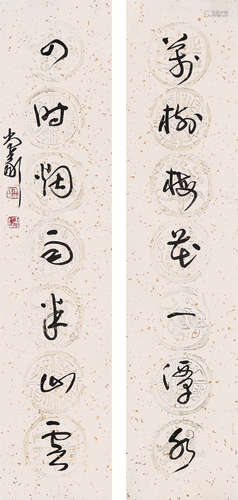 万树梅花一潭水
四时烟雨半山云